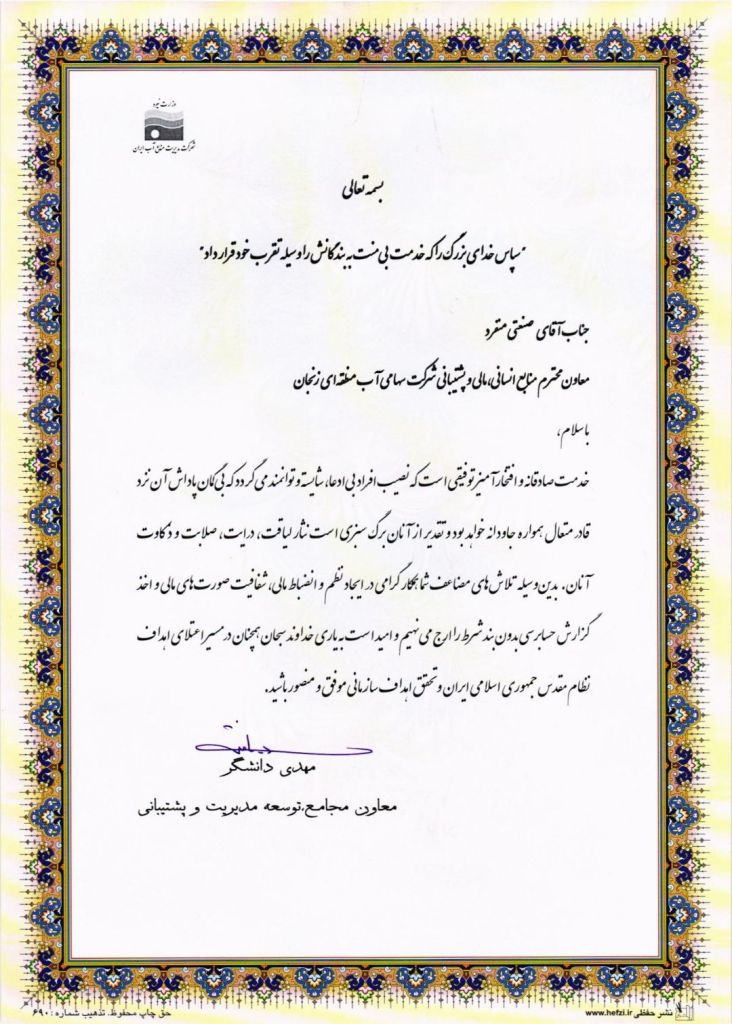 وزارت نیرو
شرکت مدیریت منابع آب ایران
بسمه تعالی
"سپاس خدای بزرگ را که خدمت بی منت به بندگانش را وسیله تقرب خود قرار داد"
جناب آقای صنعتی منفرد
معاون محترم منابع انسانی، مالی و پشتیبانی شرکت سهامی آب منطقه ای زنجان
با سلام،
خدمت صادقانه و افتخارآمیز توفیقی است که نصیب افراد بی ادعا، شایسته و توانمند می گردد که بی گمان پاداش آن نزد
قادر متعال همواره جاودانه خواهد بود و تقدیر از آنان برگ سبزی است نثار لیاقت، درایت، صلابت و ذکاوت
آنان. بدین وسیله تلاش های مضاعف شما همکار گرامی در ایجاد نظم و انضباط مالی، شفافیت صورت های مالی و اخذ
گزارش حسابرسی بدون بند شرط را ارج می نهیم و امید است به یاری خداوند سبحان همچنان در مسیر اعتلای اهداف
نظام مقدس جمهوری اسلامی ایران و تحقق اهداف سازمانی موفق و منصور باشید.
مهدی دانشگر
معاون مجامع،توسعه مدیریت و پشتیبانی
نشر حفظی www.hefzi.ir
حق چاپ محفوظ. تذهیب شماره: ۶۹۰